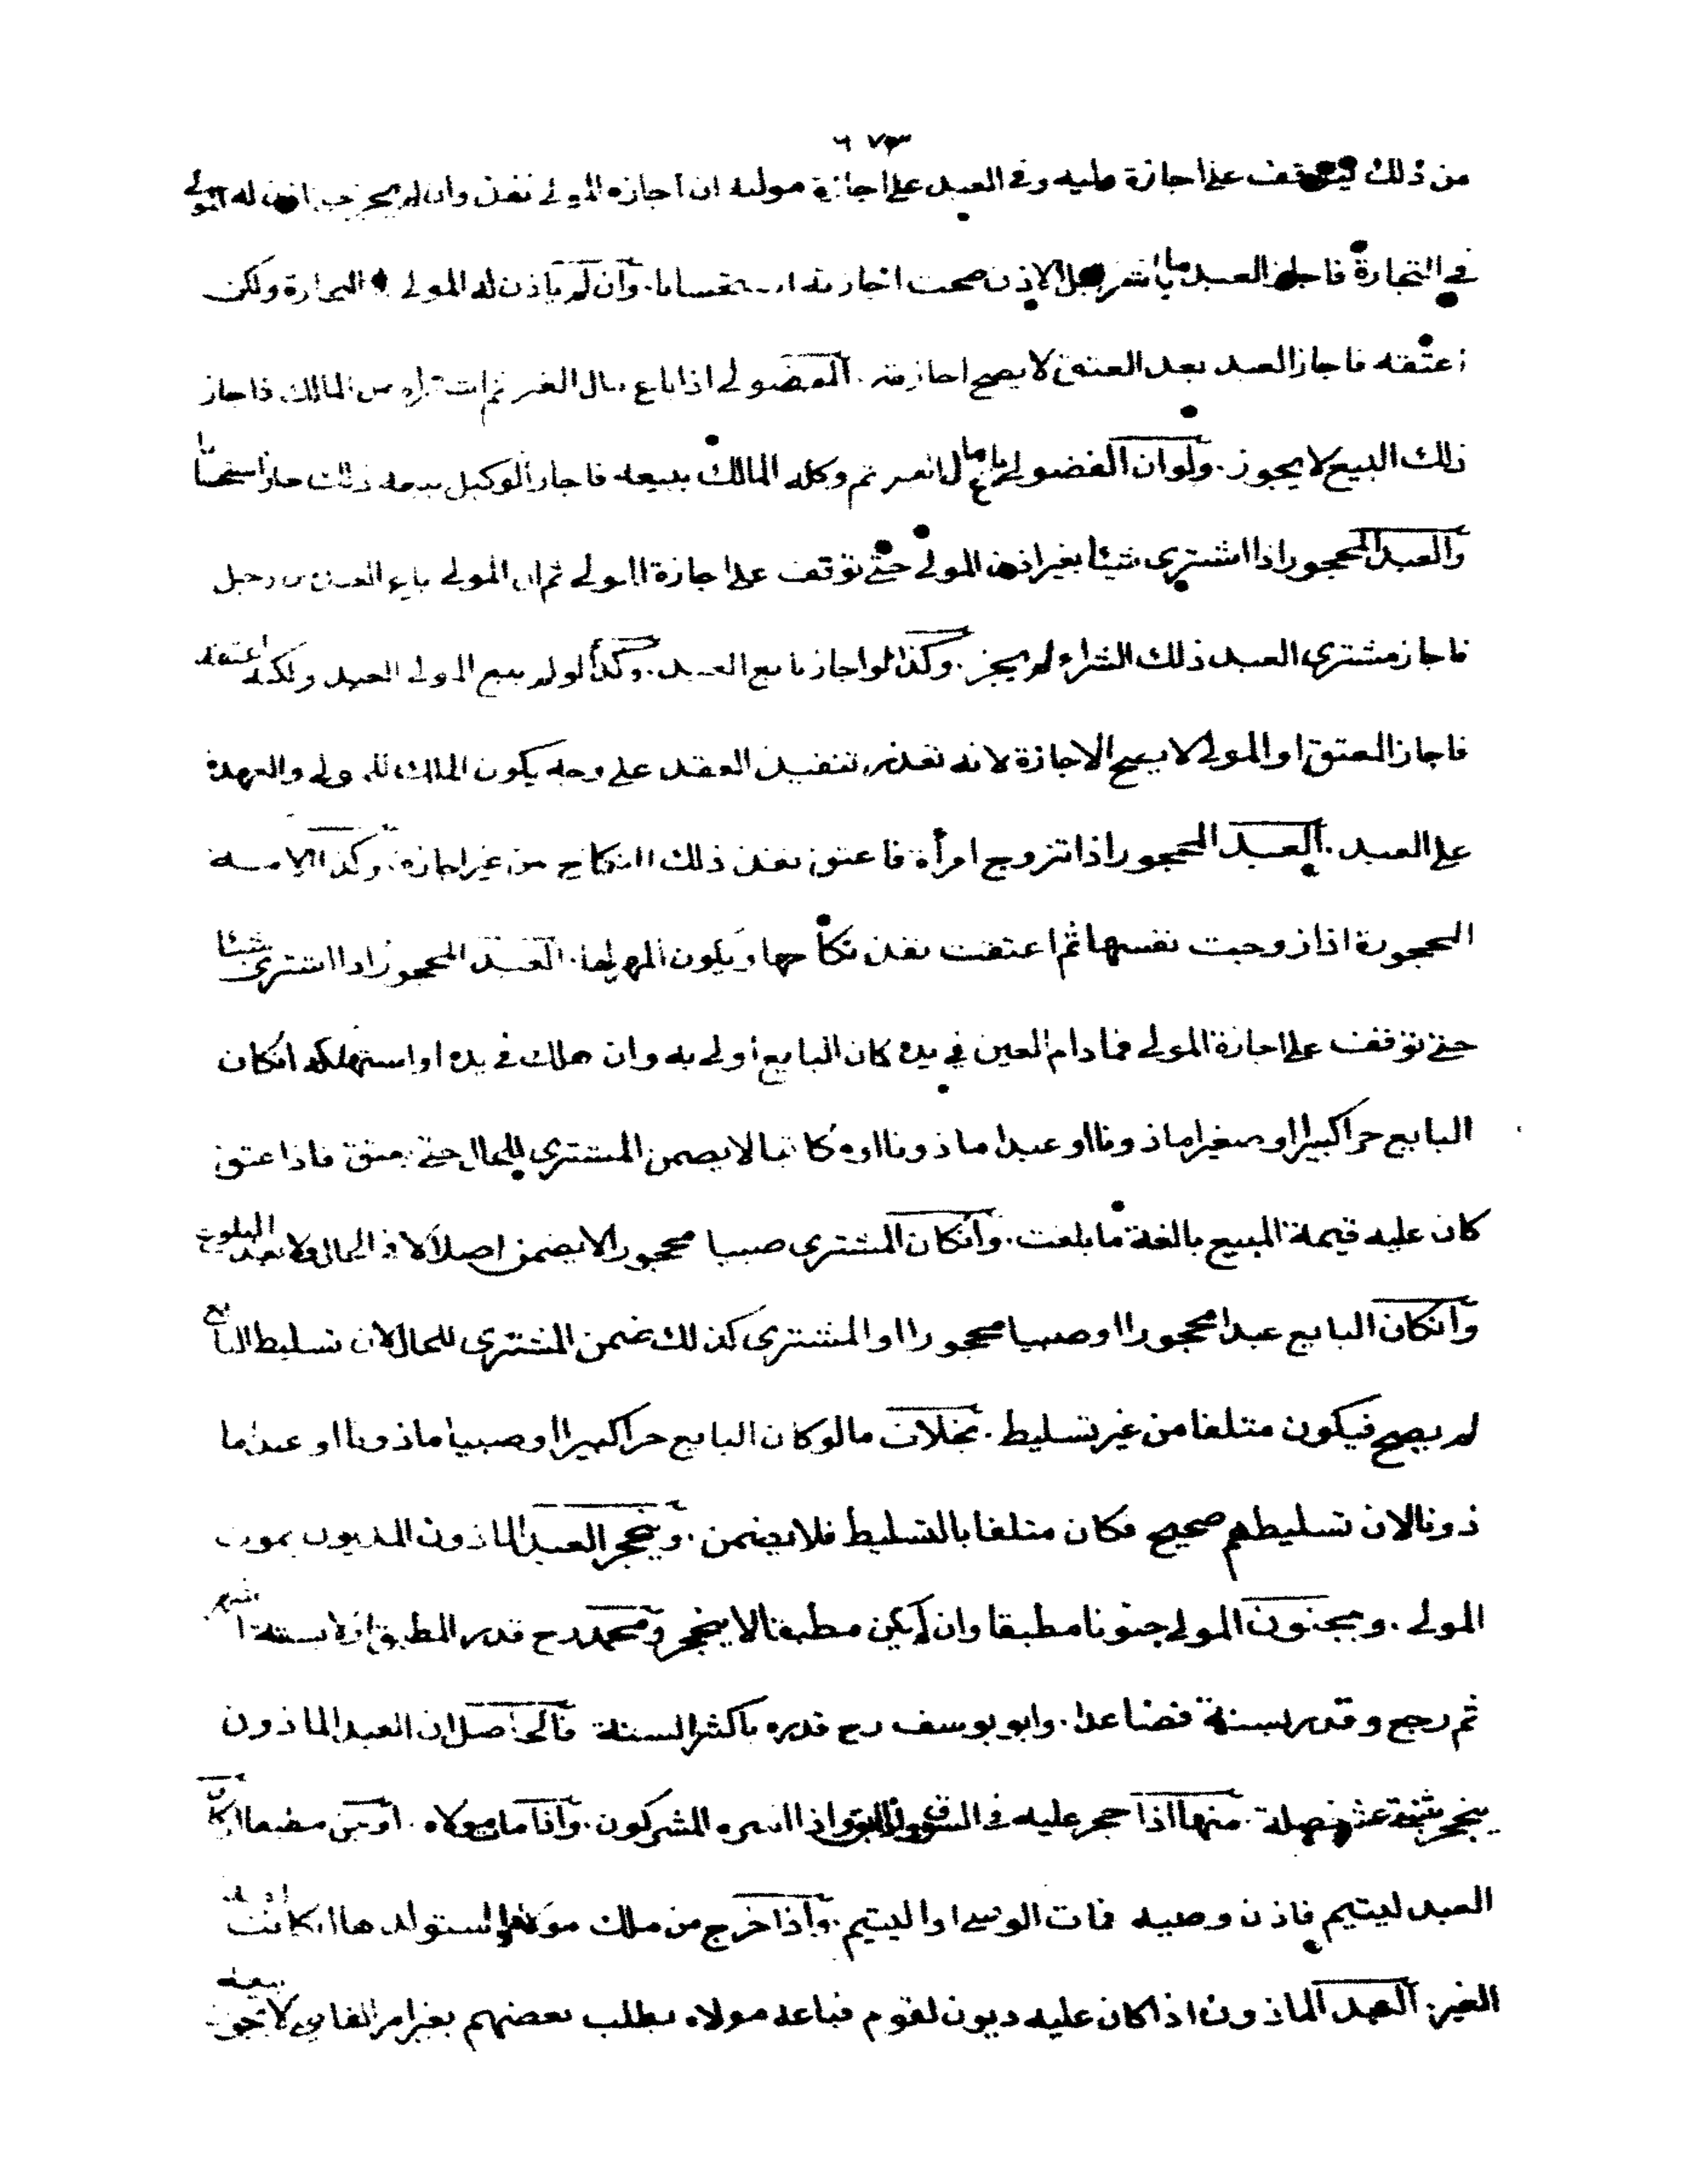 ٦٧٣
من ذلك فيتوقف على اجازة وليه وفي العبد على اجازة مولاه ان اجازه المولى نفذ وان لم يجز حتى اذن له المولى
في التجارة فاجاز العبد ما باشر قبل الاذن صحت اجازته استحسانا. وان لم ياذن له المولى في التجارة ولكن
اعتقه فاجاز العبد بعد العتق لا يصح اجازته. الفضولي اذا باع مال الغير ثم اشتراه من المالك فاجاز
ذلك البيع لا يجوز. ولو ان الفضولي باع مال الغير ثم وكله المالك ببيعه فاجاز الوكيل بيعه ذلك جاز استحسانا
والعبد المحجور اذا اشترى شيئا بغير اذن المولى حتى توقف على اجازة المولى ثم ان المولى باع العبد من رجل
فاجاز مشتري العبد ذلك الشراء لم يجز. وكذا لو اجاز بايع العبد. وكذا لو لم يبع المولى العبد ولكنه اعتقه
فاجاز المعتق او المولى لا يصح الاجازة لانه تعذر تنفيذ العقد على وجه يكون الملك للمولى والعهدة
على العبد. العبد المحجور اذا تزوج امرأة فاعتق نفذ ذلك النكاح من غير اجازة. وكذا الامة
المحجورة اذا زوجت نفسها ثم اعتقت نفذ نكاحها ويكون المهر لها. العبد المحجور اذا اشترى شيئا
حتى توقف على اجازة المولى فما دام العين في يده كان البايع اولى به وان هلك في يده او استهلكه انكان
البايع حرا كبيرا او صغيرا ماذونا او عبدا ماذونا او مكاتبا لا يضمن المشتري للحال حتى يعتق فاذا عتق
كان عليه قيمة المبيع بالغة ما بلغت. وانكان المشتري صبيا محجورا لا يضمن اصلا لا في الحال ولا بعد البلوغ
وانكان البايع عبدا محجورا او صبيا محجورا او المشتري كذلك ضمن المشتري للحال لان تسليط البايع
لم يصح فيكون متلفا من غير تسليط. بخلاف ما لو كان البايع حرا كبيرا او صبيا ماذونا او عبدا ما
ذونا لان تسليطهم صحيح فكان متلفا بالتسليط فلا يضمن. وينحجر العبد الماذون المديون بموت
المولى. وبجنون المولى جنونا مطبقا وان لم يكن مطبقا لا ينحجر ومحمد رح قدر المطبق اولا بستة اشهر
ثم رجع وقدر بسنة فصاعدا. وابو يوسف رح قدره باكثر السنة فالحاصل ان العبد الماذون
ينحجر عشر خصلة. منها اذا حجر عليه في السوق واذا اسره المشركون. واذا مات مولاه. او جن مطبقا
العبد ليتيم فاذن وصيه فمات الوصي او اليتيم. واذا خرج من ملك مولاه استولدها انكانت
الغير. العبد الماذون اذا كان عليه ديون لقوم فباعه مولاه بطلب بعضهم بغير امر القاضي لا يجوز بيعه